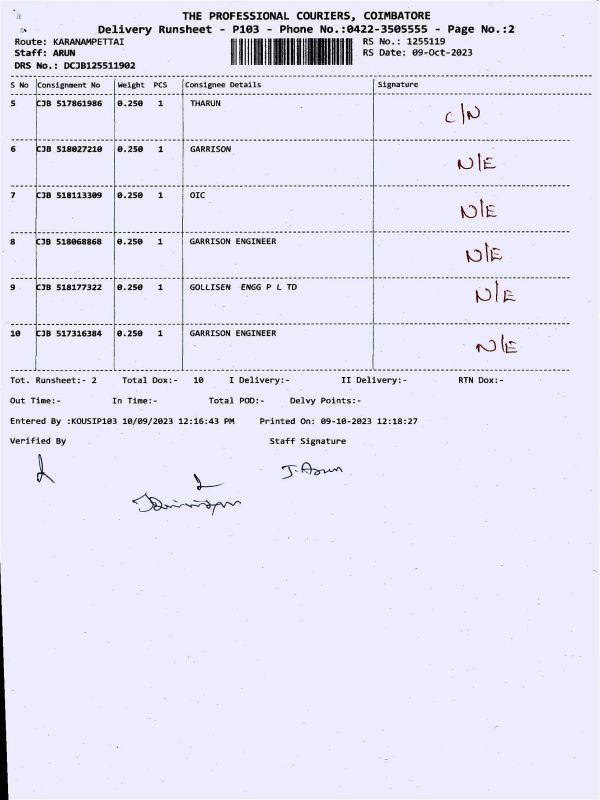 THE PROFESSIONAL COURIERS, COIMBATORE
Delivery Runsheet - P103 - Phone No.:0422-3505555 - Page No.:2
Route: KARANAMPETTAI RS No.: 1255119
Staff: ARUN RS Date: 09-Oct-2023
DRS No.: DCJB125511902
S No Consignment No Weight PCS Consignee Details Signature
5 CJB 517861986 0.250 1 THARUN C/N
6 CJB 518027210 0.250 1 GARRISON N/E
7 CJB 518113309 0.250 1 OIC N/E
8 CJB 518068868 0.250 1 GARRISON ENGINEER N/E
9 CJB 518177322 0.250 1 GOLLISEN ENGG P L TD N/E
10 CJB 517316384 0.250 1 GARRISON ENGINEER N/E
Tot. Runsheet:- 2 Total Dox:- 10 I Delivery:- II Delivery:- RTN Dox:-
Out Time:- In Time:- Total POD:- Delvy Points:-
Entered By :KOUSIP103 10/09/2023 12:16:43 PM Printed On: 09-10-2023 12:18:27
Verified By Staff Signature
J. Arun